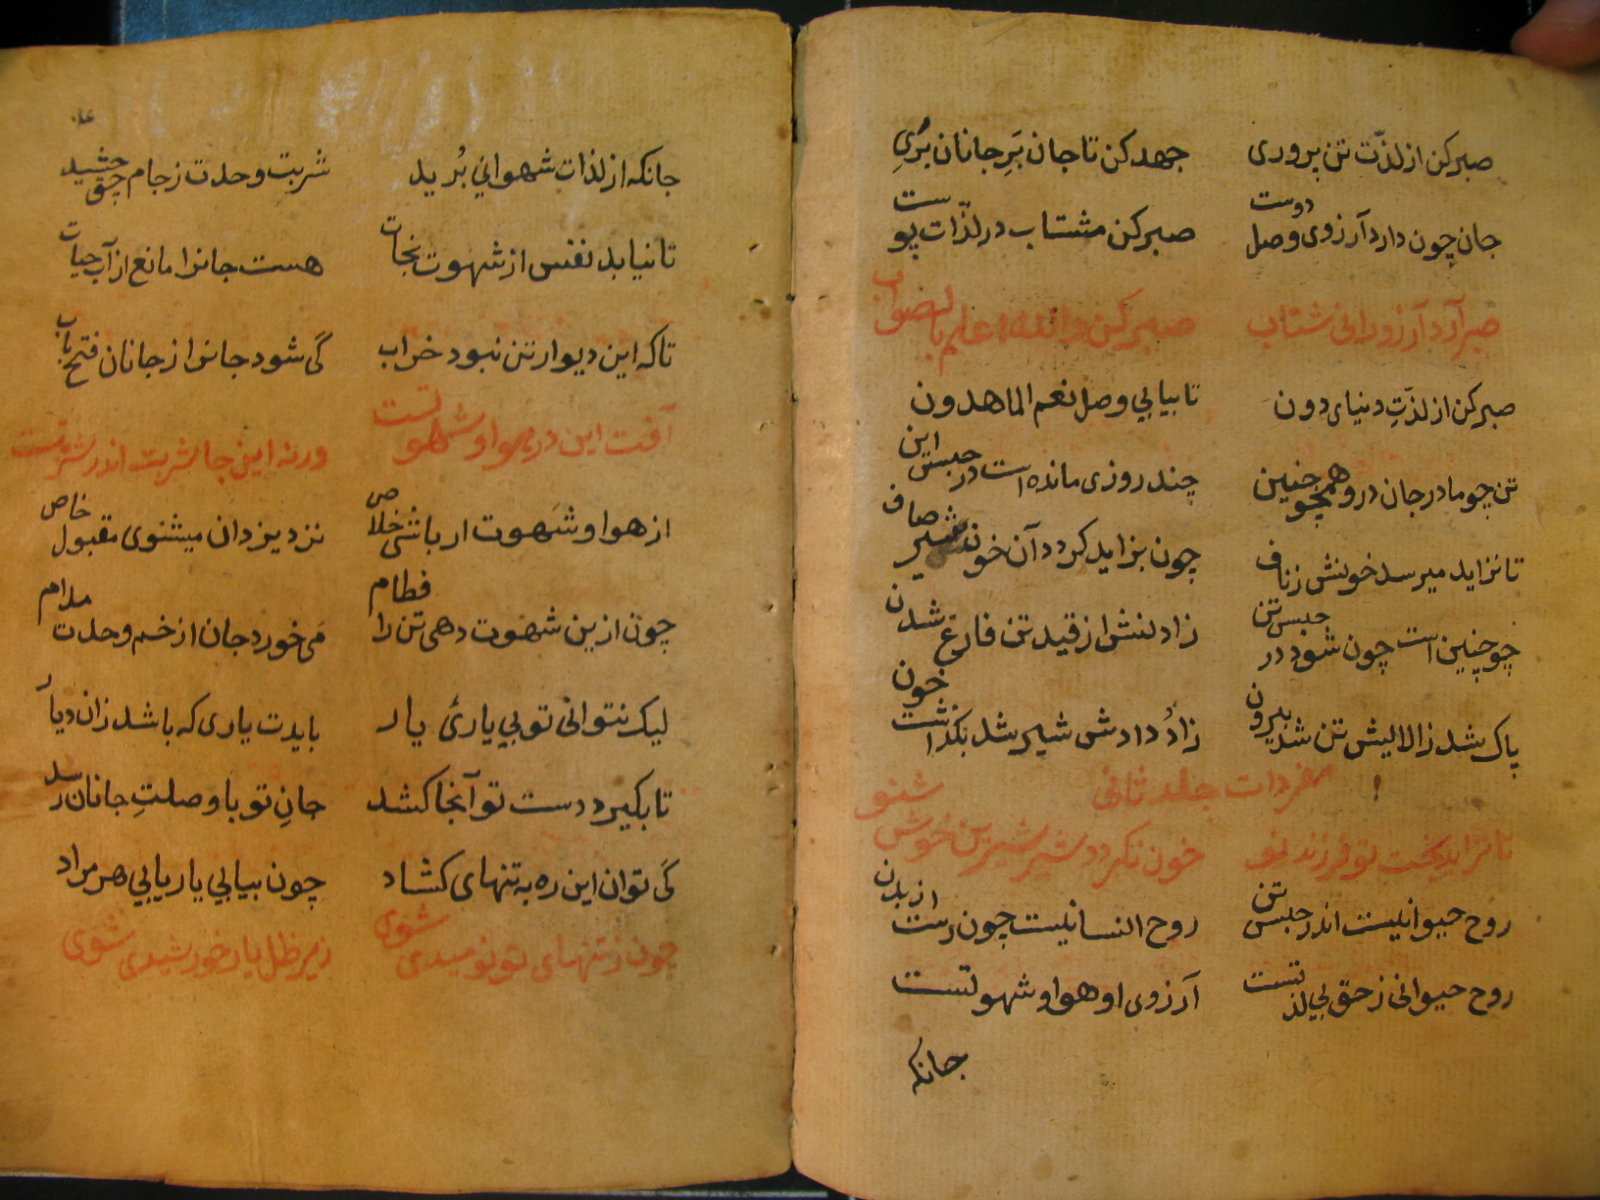 صبر کن از لذّت تن پروری جهد کن تا جان بَرِ جانان بَرُیِ
جان چون دارد آرزوی وصل دوست صبر کن مشتاب در لذّات پوست
صبر آرد آرزو را نی شتاب صبر کن والله اعلم بالصواب
صبر کن از لذّتِ دنیای دون تا بیابی وصل نعم الماهدون
تن چو مادر جان درو همچو جنین چند روزی مانده است در حبس این
تا نزاید میرسد خونش زناف چون بزاید کردد آن خون شیر صاف
چو جنین است چون شود در حبس تن زادنش از قید تن فارغ شدن
پاک شد زالایش تن شد بیرون زاد دادش شیر شد بگذاشت خون
مفردات جلد ثانی
تا نزاید بخت تو فرزند نو خون نکردد شیر شیرین خوش شنو
روح حیوانیست اندر حبس تن روح انسانیست چون رست از بدن
روح حیوانی زحق بی لذتست آرزوی او هوا و شهوتست
جانکه
جانکه از لذات شهوانی بُرید شربت وحدت زجام حق چشید
تا نیابد نفس از شهوت نجات هست جانرا مانع از آب حیات
تا که این دیوار تن نبود خراب کَی شود جانرا از جانان فتح باب
آفت این در هوا و شهوتست ورنه این جا شربت اندر شربتست
از هوا و شَهوت ار باشی خلاص نزد یزدان میشوی مقبول خاص
چون ازین شهوت دهی تن را فطام مَی خورد جان از خم وحدت مدام
لیک نتوانی تو بی یاریٔ یار بایدت یاری که باشد زان دیار
تا بکیرد دست تو آنجا کشد جانِ تو با وصلتِ جانان رسد
کَی توان این ره به تنهای کشاد چون بیابی یار یابی هر مراد
چون ز تنهای تو نومیدی شوی زیر ظل یار خورشیدی شوی